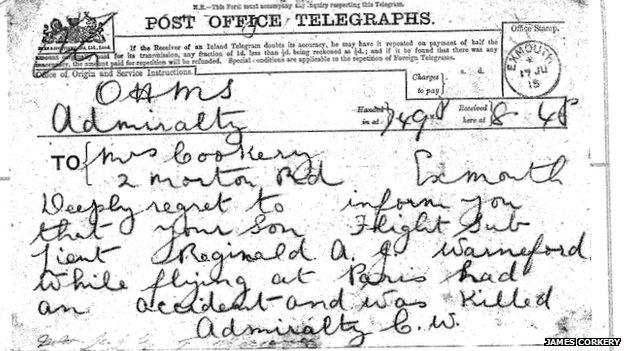 N.B.—This Form must accompany any inquiry respecting this Telegram.
POST OFFICE TELEGRAPHS.
If the Receiver of an Inland Telegram doubts its accuracy, he may have it repeated on payment of half the
amount originally paid for its transmission, any fraction of 1d. less than ½d. being reckoned as ½d.; and if it be found that there was any
inaccuracy, the amount paid for repetition will be refunded. Special conditions are applicable to the repetition of Foreign Telegrams.
Office of Origin and Service Instructions.
Charges to pay
s. d.
Office Stamp.
EXMOUTH
17 JU
15
OHMS
Admiralty
Handed in at
Received here at
8 48
TO Mrs Cookery
2 Morton Rd Exmouth
Deeply regret to inform you
that your Son Flight Sub
Lieut Reginald A. J. Warneford
While flying at Paris had
an accident and was Killed
Admiralty C.W.
JAMES CORKERY